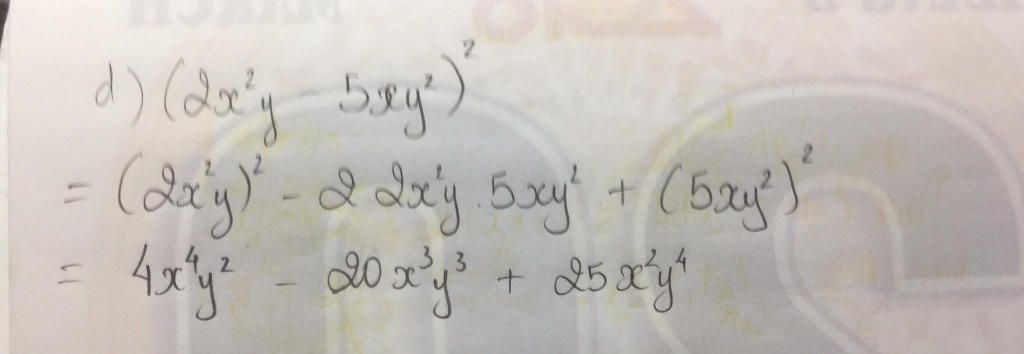 MARCH
d) (2x²y - 5xy²)²
= (2x²y)² - 2.2x²y.5xy² + (5xy²)²
= 4x⁴y² - 20x³y³ + 25x²y⁴